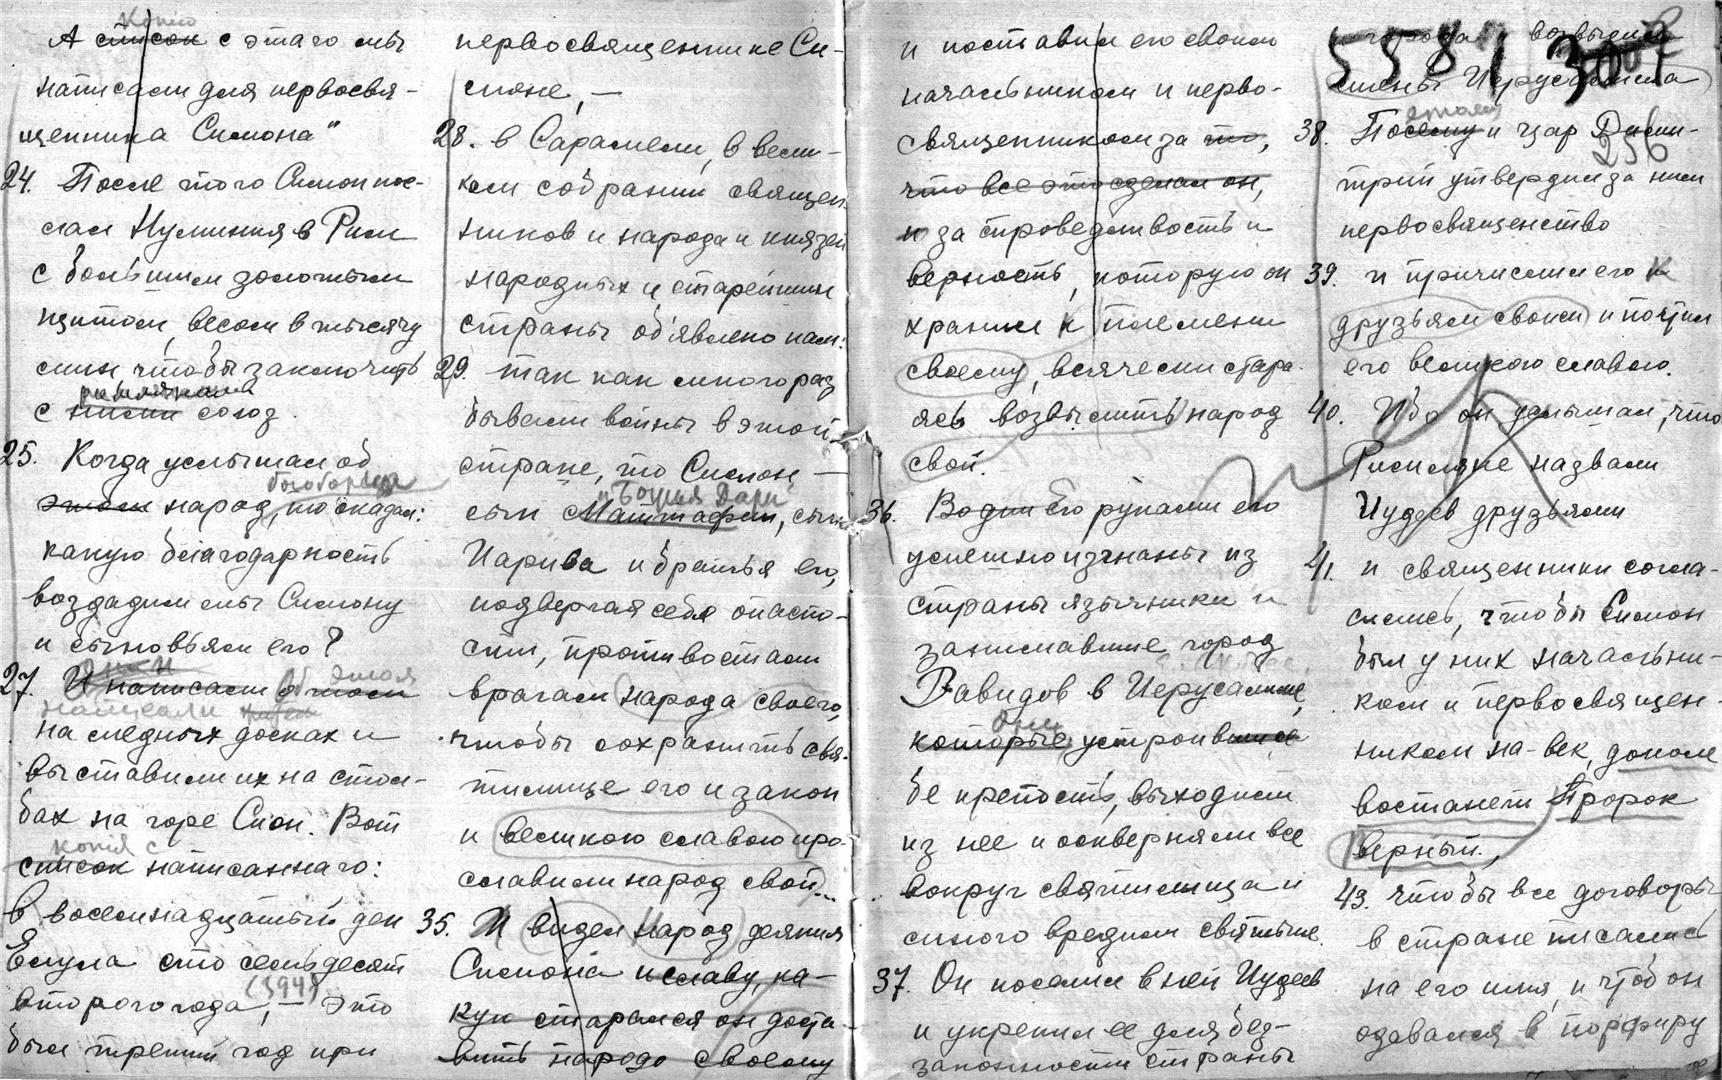 копию
А список с этого мы
написали для первосвя-
щенника Симона"
24. После того Симон пос-
лал Нуминия в Рим
с большим золотым
щитом, весом в тысячу
мин чтобы заключить
римлянами
с ними союз.
25. Когда услышал об
богоборца
этом народ, то сказал:
какую благодарность
воздадим мы Симону
и сыновьям его?
они и
27. И написали о том
об этом
написали
на медных досках и
выставили их на стол-
бах на горе Сион. Вот
копия с
список написаннаго:
в восемнадцатый ден
Елула сто семьдесят
(394)
второго года, — это
был третий год при
первосвященнике Си-
моне, —
28. в Сарамели, в вели-
ком собрании священ-
ников и народа и князей
народных и старейшин
страны об'явлено нам:
29. так как много раз
бывали войны в этой
стране, то Симон, —
"Божия Дара
сын Маттафии, сына
Иарива и братья его,
подвергая себя опасно-
сти, противостали
врагам народа своего,
чтобы сохранить свя-
тилище его и закон
и великою славою про-
славили народ свой...
35. И видел народ деяния
Симона и славу, ка-
кую старался он доста-
вить народу своему
и поставил его своим
начальником и перво-
священником за то,
что все это сделал он,
и за справедливость и
верность, которую он
хранил к племени
своему, всячески стара-
ясь возвысить народ
свой.
36. Во дни его руками его
успешно изгнаны из
страны язычники и
занимавшие город
Давидов в Иерусалиме,
они
которые устроивши се
бе крепость, выходили
из нее и оскверняли все
вокруг святилища и
много вредили святыне.
37. Он поселил в ней Иудеев
и укрепил ее для без-
запопности страны
города и возвысил
5581 307
стены Иерусалима
этому
38. Посему и царь Дими-
256
трий утвердил за ним
первосвященство
39. и причислил его к
друзьям своим и почтил
его великою славою.
40. Ибо он услышал, что
Римляне назвали
Иудеев друзьями
41. и священники согла-
сились, чтобы Симон
был у них начальни-
ком и первосвящен-
ником на-век, доколе
востанет Пророк
верный,
43. чтобы все договоры
в стране писались
на его имя, и чтоб он
одевался в порфиру